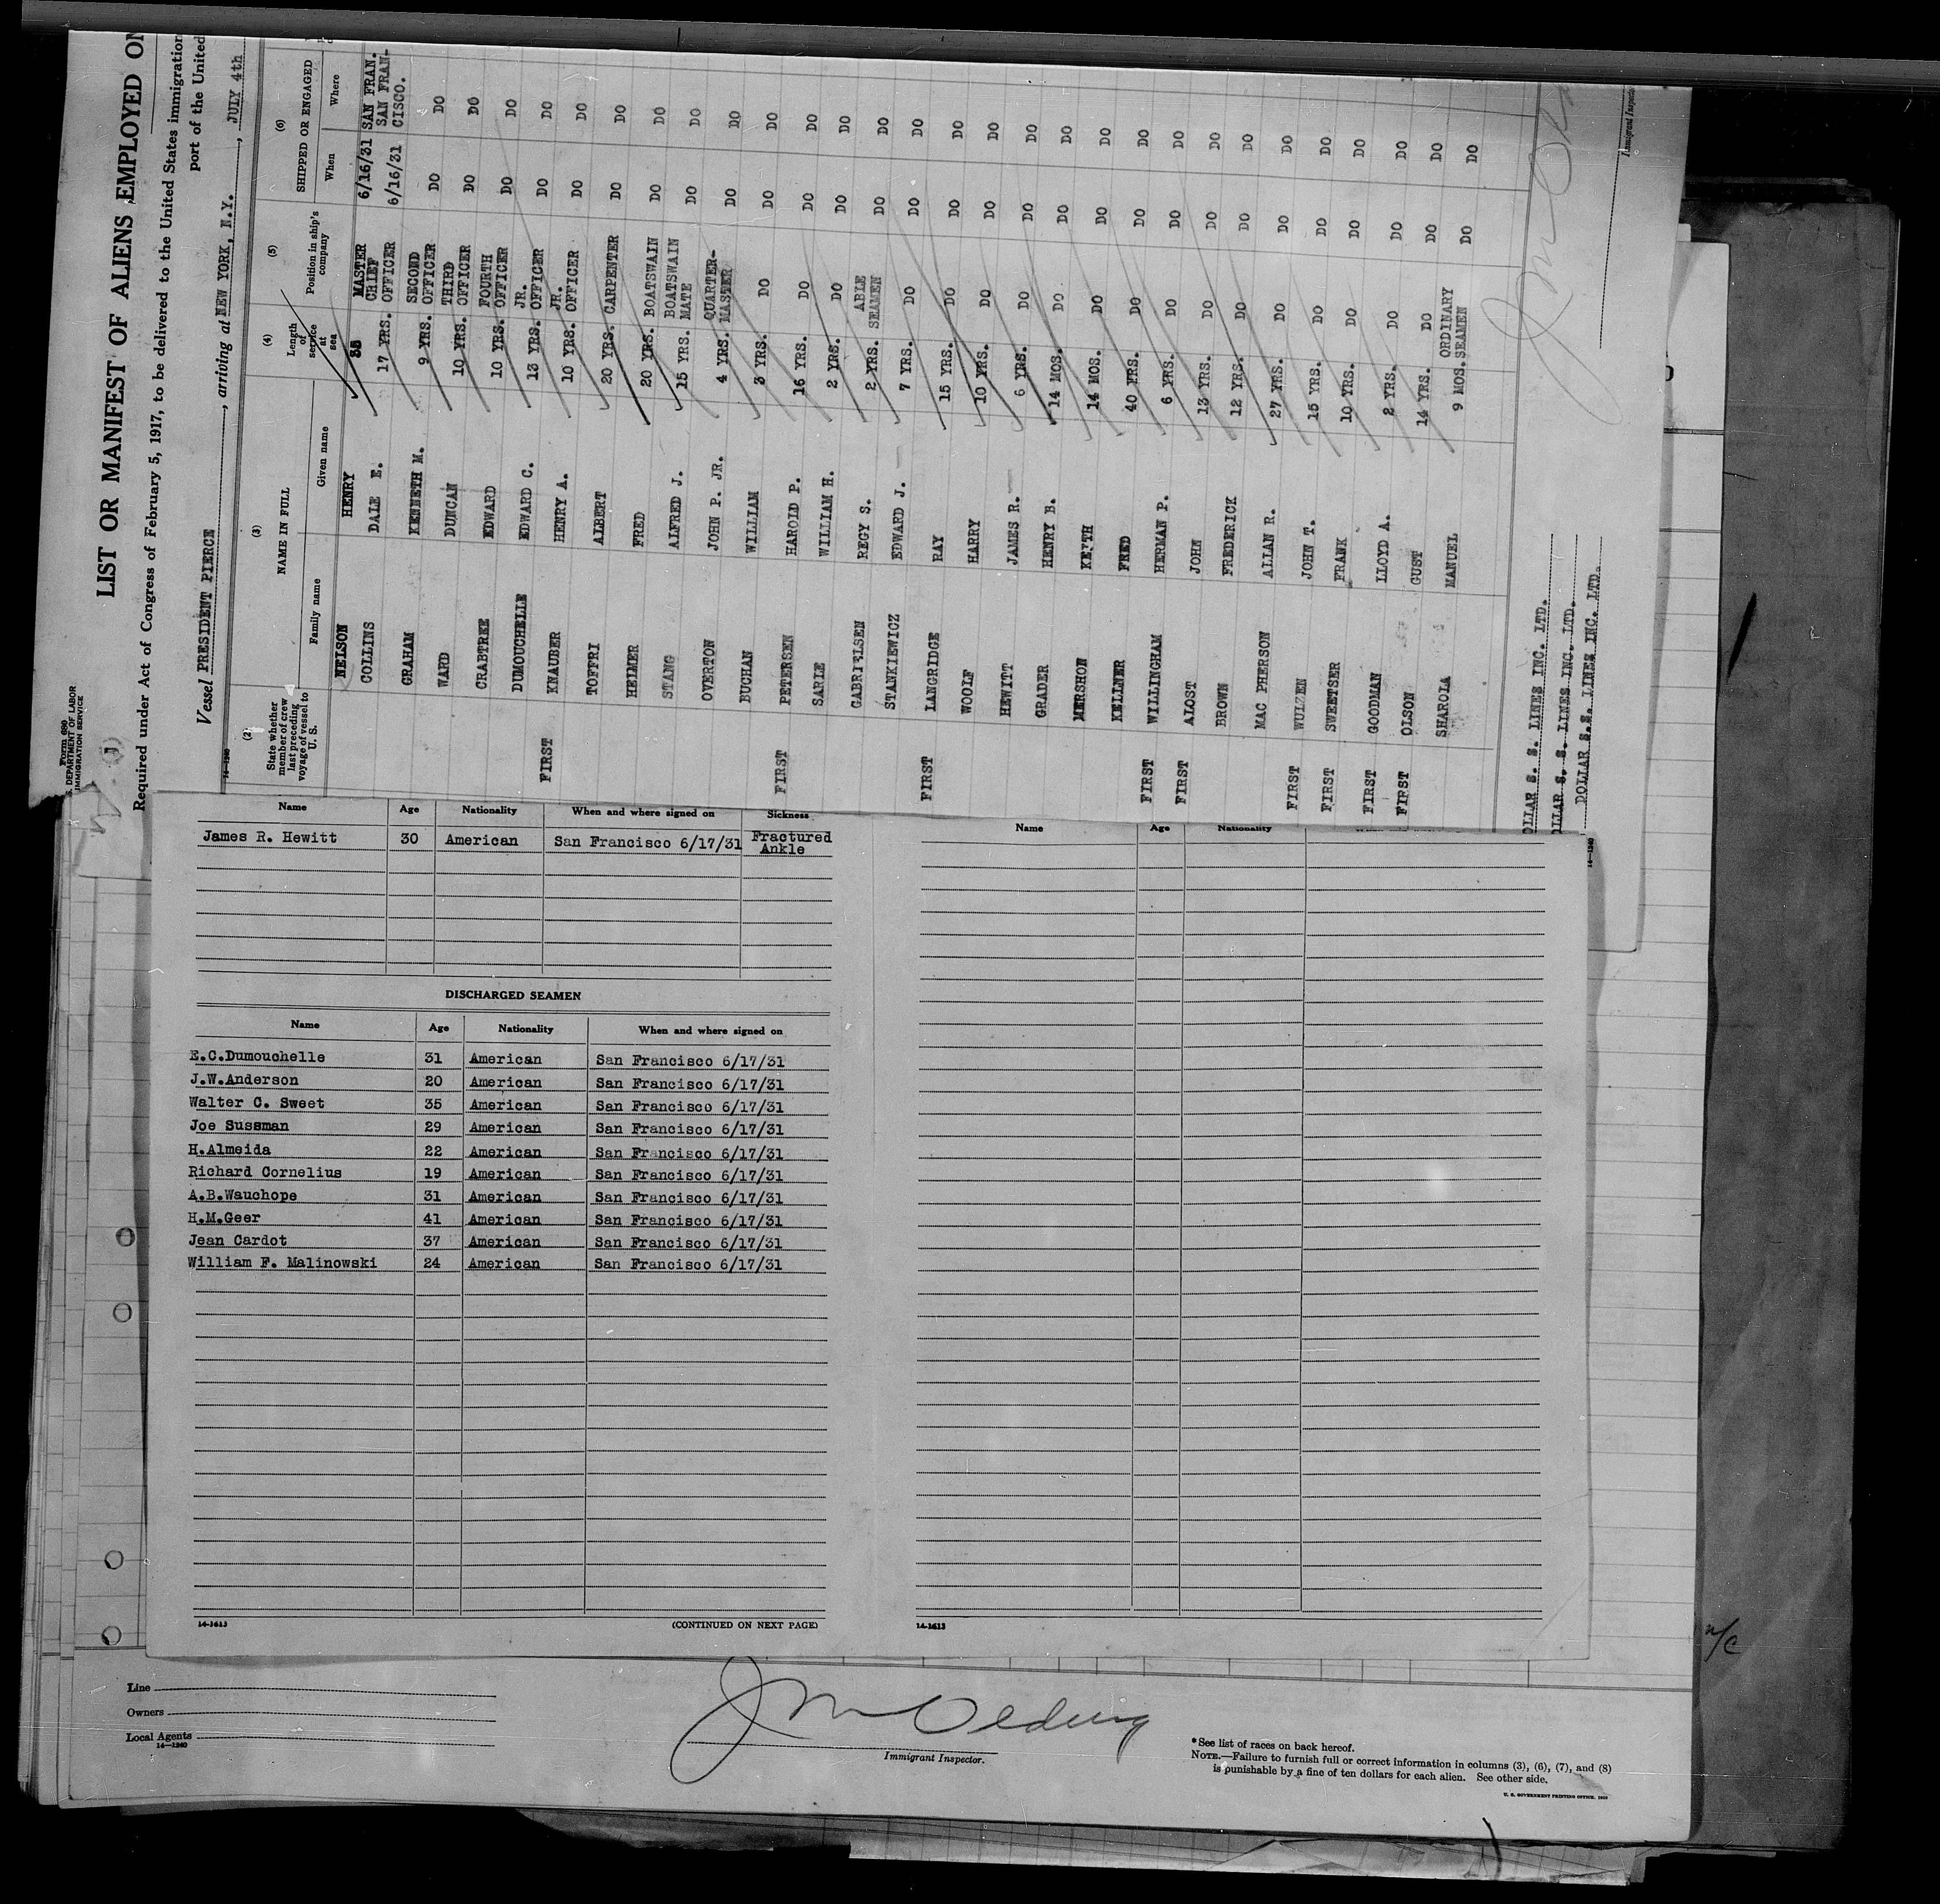 Form 680
S. DEPARTMENT OF LABOR
IMMIGRATION SERVICE
LIST OR MANIFEST OF ALIENS EMPLOYED ON
Required under Act of Congress of February 5, 1917, to be delivered to the United States immigration
port of the United
Vessel PRESIDENT PIERCE, arriving at NEW YORK, N.Y., JULY 4th
14-1240
(2) (3) (4) (5) (6)
State whether member of crew last preceding voyage of vessel to U. S. NAME IN FULL Length of service at sea Position in ship's company SHIPPED OR ENGAGED
Family name Given name When Where
NELSON HENRY 35 MASTER 6/16/31 SAN FRAN.
COLLINS DALE E. 17 YRS. CHIEF OFFICER 6/16/31 SAN FRAN-CISCO.
GRAHAM KENNETH M. 9 YRS. SECOND OFFICER DO DO
WARD DUNCAN 10 YRS. THIRD OFFICER DO DO
CRABTREE EDWARD 10 YRS. FOURTH OFFICER DO DO
DUMOUCHELLE EDWARD C. 13 YRS. JR. OFFICER DO DO
FIRST KNAUBER HENRY A. 10 YRS. JR. OFFICER DO DO
TOFFRI ALBERT 20 YRS. CARPENTER DO DO
HEIMER FRED 20 YRS. BOATSWAIN DO DO
STANG ALFRED J. 15 YRS. BOATSWAIN MATE DO DO
OVERTON JOHN P. JR. 4 YRS. QUARTER-MASTER DO DO
BUCHAN WILLIAM 3 YRS. DO DO DO
FIRST PETERSEN HAROLD P. 16 YRS. DO DO DO
SARLE WILLIAM H. 2 YRS. DO DO DO
GABRIELSEN REGY S. 2 YRS. ABLE SEAMEN DO DO
STANKIEWICZ EDWARD J. 7 YRS. DO DO DO
FIRST LANGRIDGE RAY 15 YRS. DO DO DO
WOOLF HARRY 10 YRS. DO DO DO
HEWITT JAMES R. 6 YRS. DO DO DO
GRADER HENRY B. 14 MOS. DO DO DO
MERSHON KEITH 14 MOS. DO DO DO
KELLNER FRED 40 YRS. DO DO DO
FIRST WILLINGHAM HERMAN P. 6 YRS. DO DO DO
FIRST ALOST JOHN 13 YRS. DO DO DO
BROWN FREDERICK 12 YRS. DO DO DO
MAC PHERSON ALLAN R. 27 YRS. DO DO DO
FIRST WULZEN JOHN T. 15 YRS. DO DO DO
FIRST SWEETSER FRANK 10 YRS. DO DO DO
FIRST GOODMAN LLOYD A. 2 YRS. DO DO DO
FIRST OLSON GUST 14 YRS. DO DO DO
SHAROLA MANUEL 9 MOS. ORDINARY SEAMEN DO DO
OLLAR S. S. LINES INC. LTD.
OLLAR S. S. LINES INC. LTD.
DOLLAR S.S. LINES INC. LTD.
14-1240
Immigrant Inspector
Name Age Nationality When and where signed on Sickness
James R. Hewitt 30 American San Francisco 6/17/31 Fractured Ankle
DISCHARGED SEAMEN
Name Age Nationality When and where signed on
E.C.Dumouchelle 31 American San Francisco 6/17/31
J.W.Anderson 20 American San Francisco 6/17/31
Walter C. Sweet 35 American San Francisco 6/17/31
Joe Sussman 29 American San Francisco 6/17/31
H.Almeida 22 American San Francisco 6/17/31
Richard Cornelius 19 American San Francisco 6/17/31
A.B.Wauchope 31 American San Francisco 6/17/31
H.M.Geer 41 American San Francisco 6/17/31
Jean Cardot 37 American San Francisco 6/17/31
William F. Malinowski 24 American San Francisco 6/17/31
14-1613 (CONTINUED ON NEXT PAGE)
Name Age Nationality
14-1613
n/c
Line
Owners
Local Agents
14-1240
Immigrant Inspector.
*See list of races on back hereof.
NOTE.—Failure to furnish full or correct information in columns (3), (6), (7), and (8)
is punishable by a fine of ten dollars for each alien. See other side.
U. S. GOVERNMENT PRINTING OFFICE